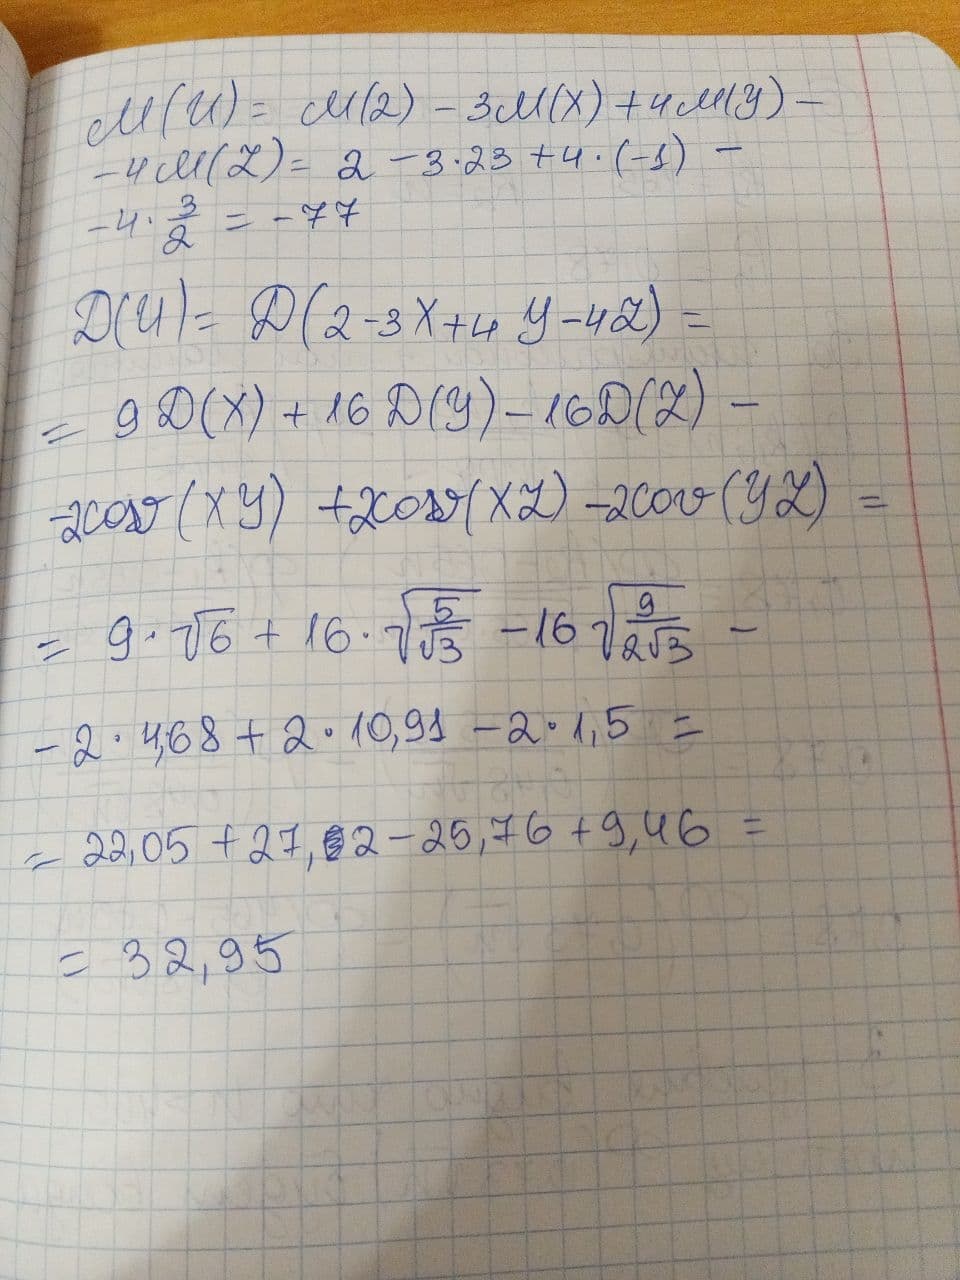 M(U) = M(2) - 3M(X) + 4M(Y) -
- 4M(Z) = 2 - 3·23 + 4·(-1) -
- 4· 3/2 = -77
D(U) = D(2-3X+4Y-4Z) =
= 9D(X) + 16D(Y) - 16D(Z) -
-2cov(XY) +2cov(XZ) -2cov(YZ) =
= 9·√6 + 16·√(5/√3) - 16√(9/2√3) -
- 2·4,68 + 2·10,91 - 2·1,5 =
= 22,05 + 27,2 - 25,76 + 9,46 =
= 32,95